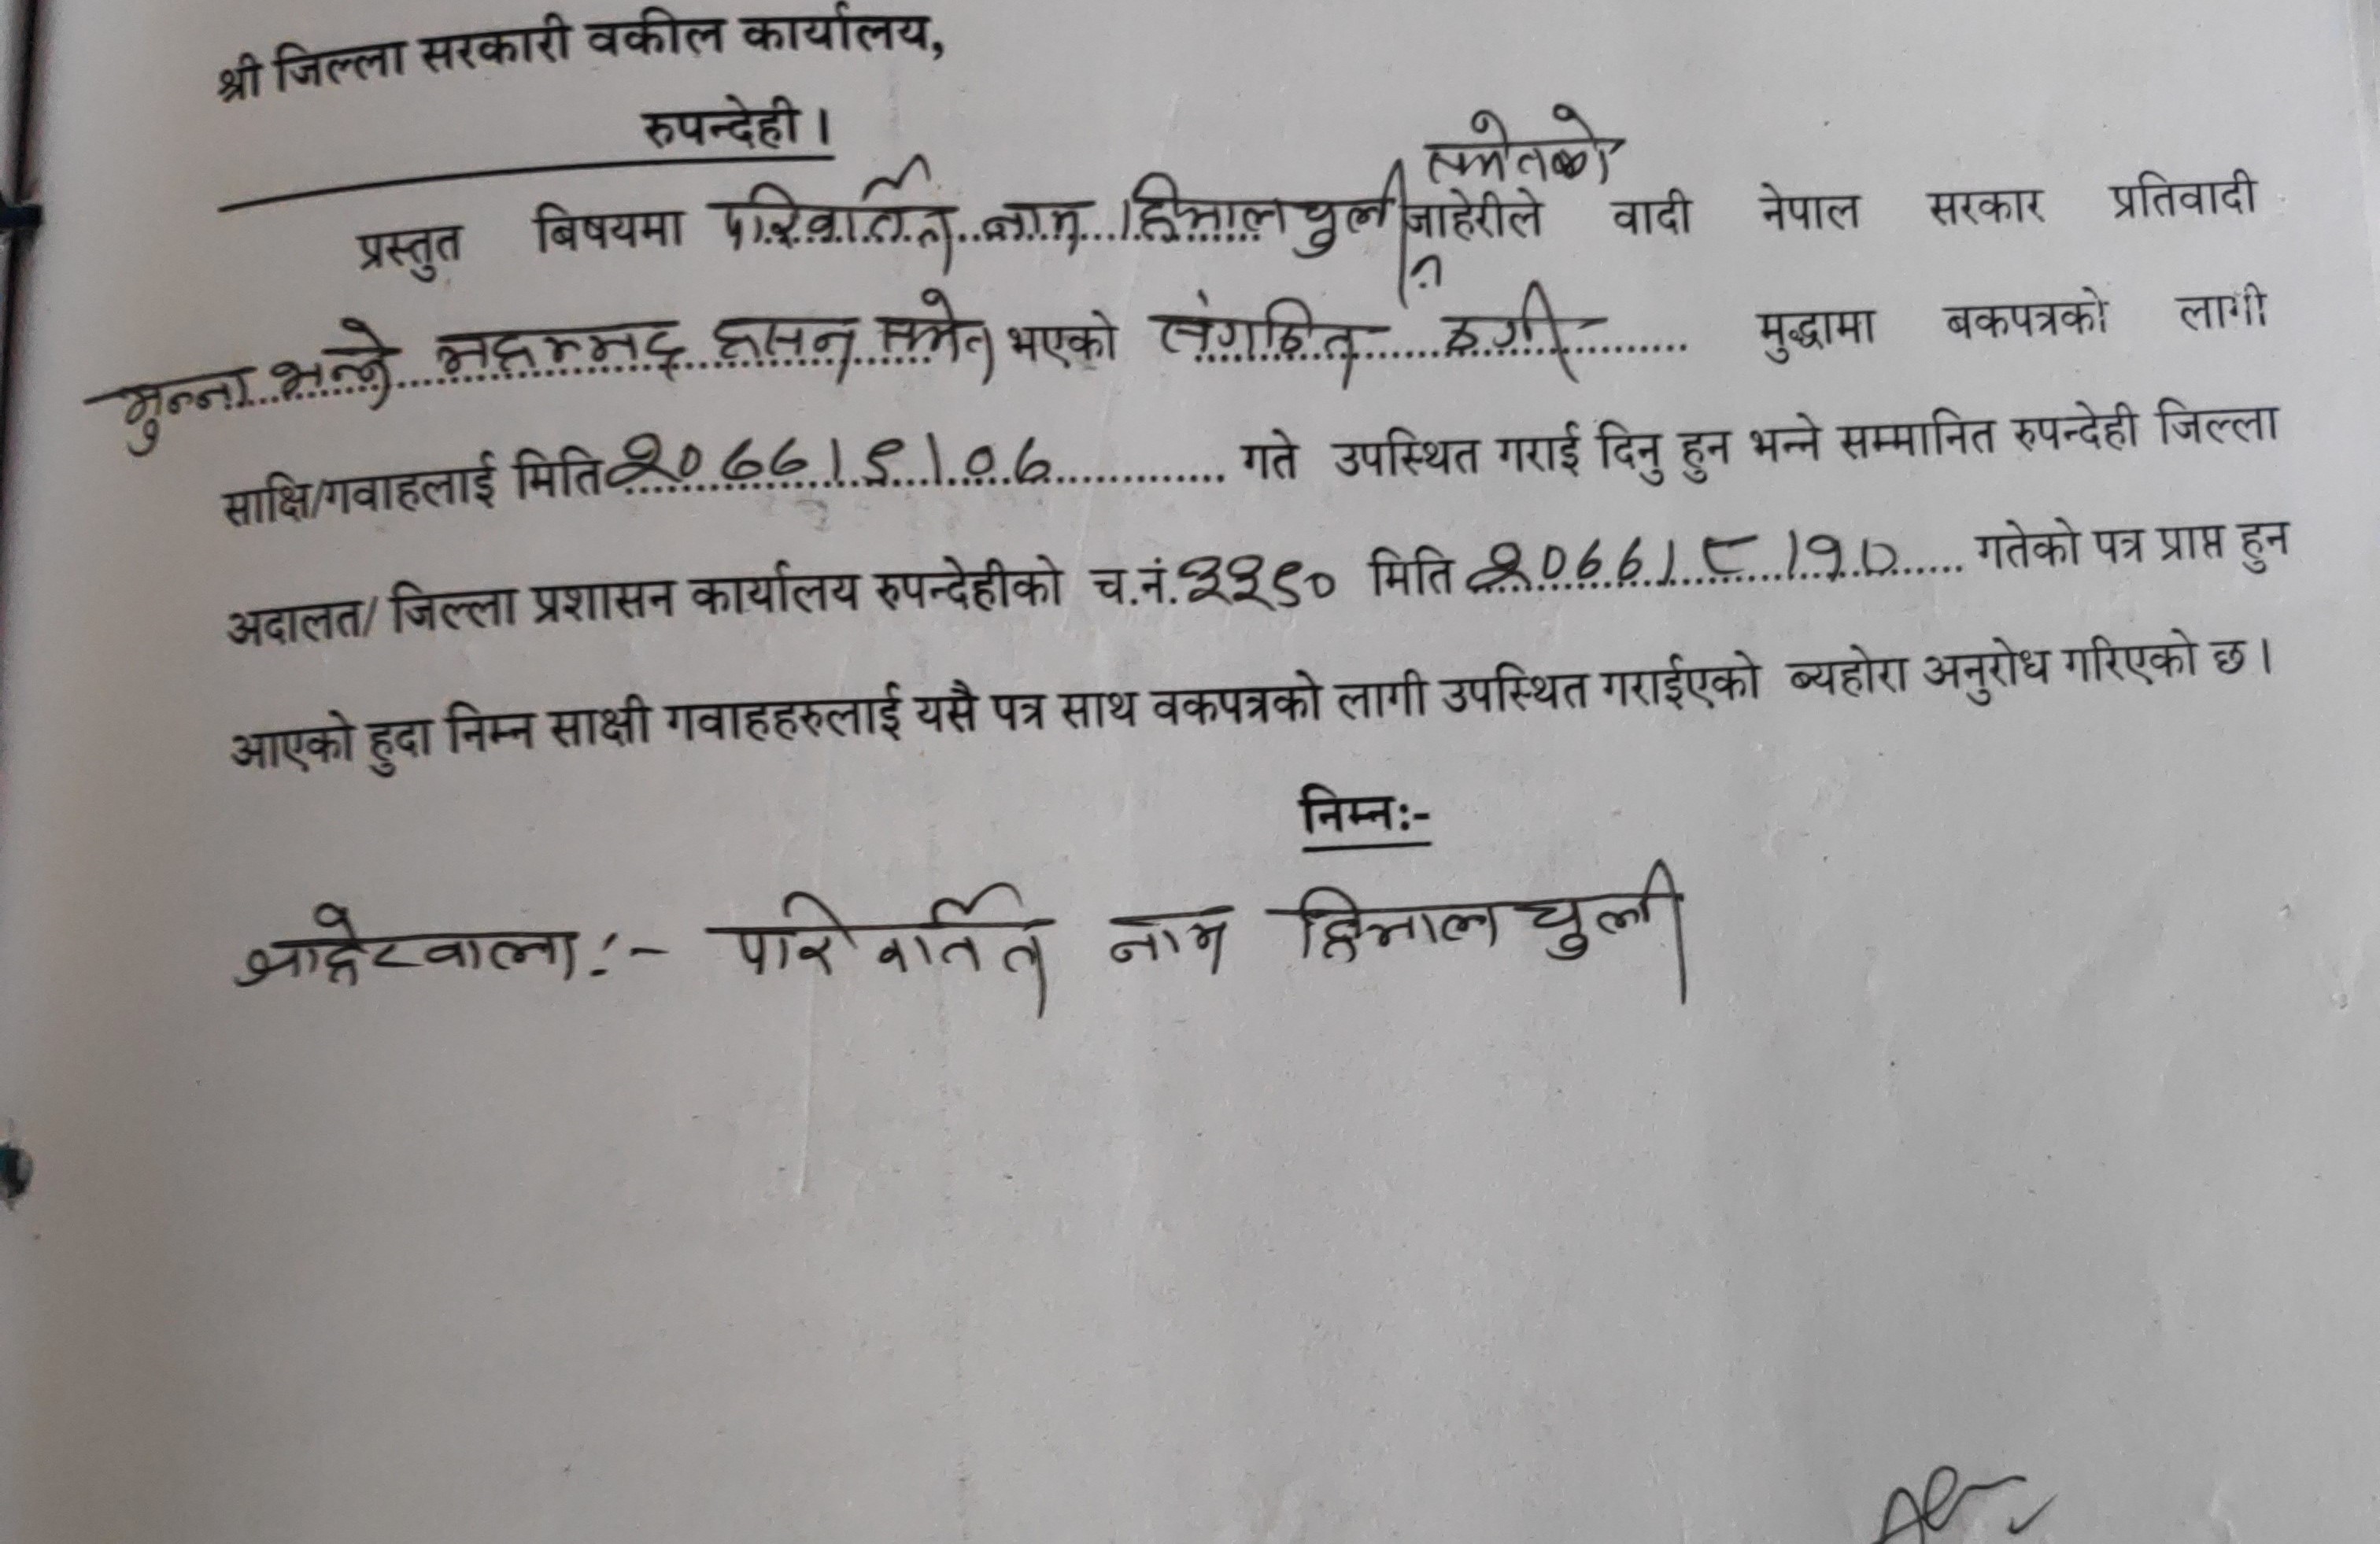 श्री जिल्ला सरकारी वकील कार्यालय,
रुपन्देही ।
समेतको
प्रस्तुत बिषयमा परिवर्तित नाम हिमाल चुली जाहेरीले वादी नेपाल सरकार प्रतिवादी
मुन्ना भन्ने महम्मद हासन समेत भएको संगठित ठगी मुद्धामा बकपत्रको लागी
साक्षि/गवाहलाई मिति २०७७।९।०७ गते उपस्थित गराई दिनु हुन भन्ने सम्मानित रुपन्देही जिल्ला
अदालत/ जिल्ला प्रशासन कार्यालय रुपन्देहीको च.नं. ३३९० मिति २०७७।८।१० गतेको पत्र प्राप्त हुन
आएको हुदा निम्न साक्षी गवाहहरुलाई यसै पत्र साथ वकपत्रको लागी उपस्थित गराईएको ब्यहोरा अनुरोध गरिएको छ ।
निम्न:-
जाहेरवाला:- परिवर्तित नाम हिमाल चुली